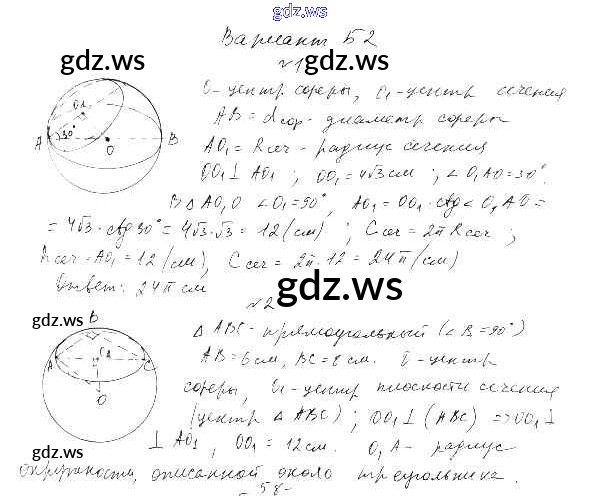 gdz.ws
Вариант Б2
gdz.ws gdz.ws
№1
O - центр сферы, O₁ - центр сечения
AB = dсф - диаметр сферы
AO₁ = Rсеч - радиус сечения
OO₁ ⊥ AO₁ ; OO₁ = 4√3 см ; ∠O₁AO = 30°.
A 30° O B O₁
В △ AO₁O ∠O₁ = 90°, AO₁ = OO₁ · ctg∠O₁AO =
= 4√3 · ctg 30° = 4√3 · √3 = 12 (см) ; Cсеч = 2π Rсеч ;
Rсеч = AO₁ = 12 (см), Cсеч = 2π · 12 = 24π (см)
Ответ: 24π см
gdz.ws
№2
gdz.ws gdz.ws
B A C O₁ O
△ ABC - прямоугольный (∠B = 90°)
AB = 6 см, BC = 8 см. O - центр
сферы, O₁ - центр плоскости сечения
(центр △ ABC) ; OO₁ ⊥ (ABC) => OO₁ ⊥
⊥ AO₁ , OO₁ = 12 см. O₁A - радиус
окружности, описанной около треугольника.
- 58 -
gdz.ws gdz.ws